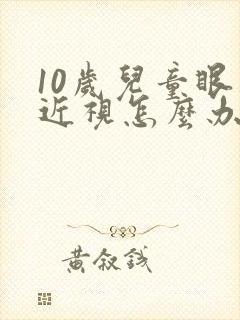 10歲兒童眼
近視怎麼办
黄叙錢